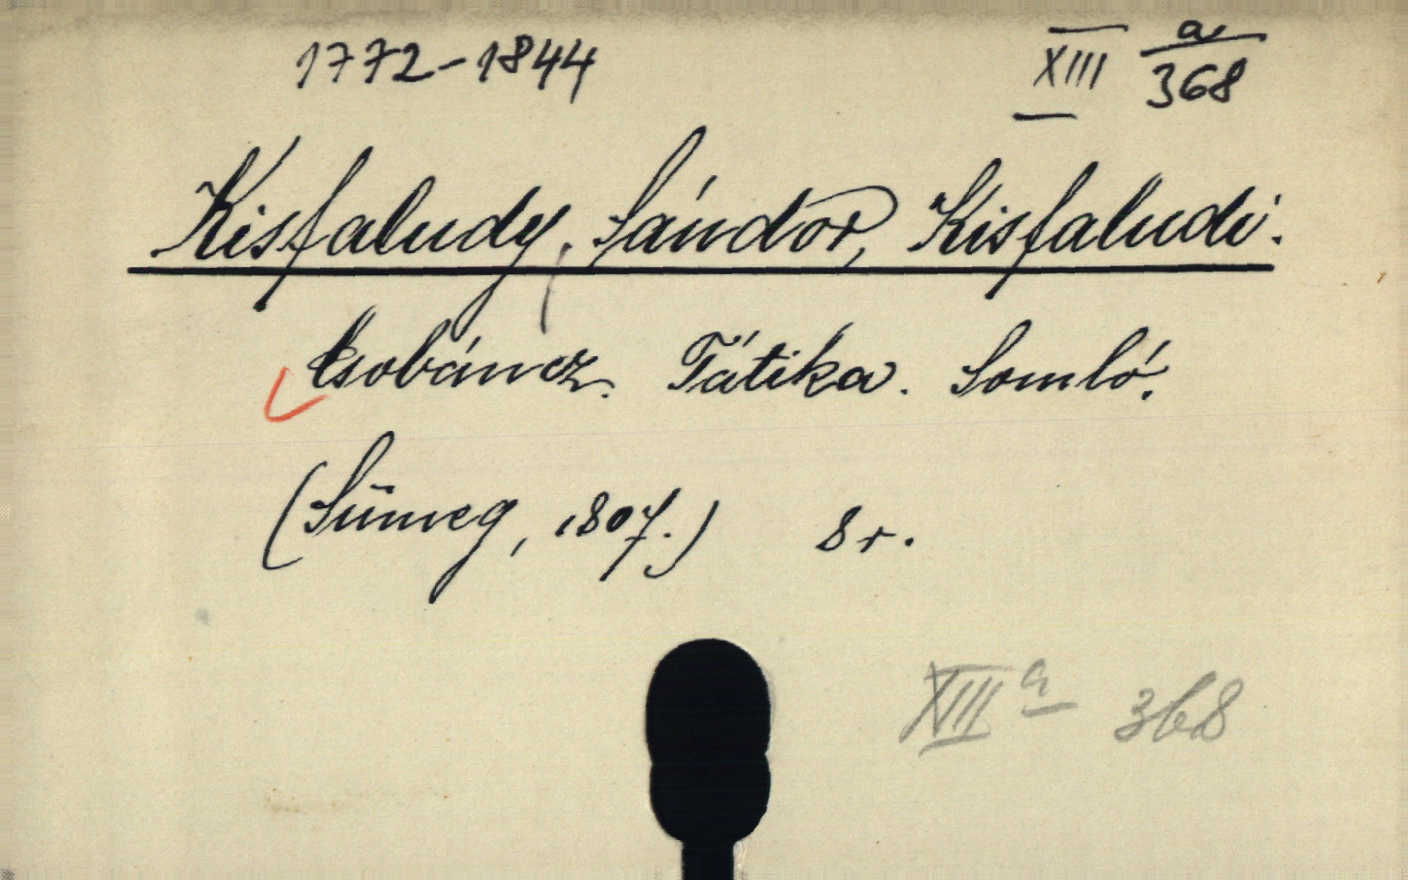 1772-1844 XIII a/368
Kisfaludy, Sándor, Kisfaludi.
Csobáncz. Tátika. Somló.
(Sümeg, 1807.) 8 r.
XIII a 368